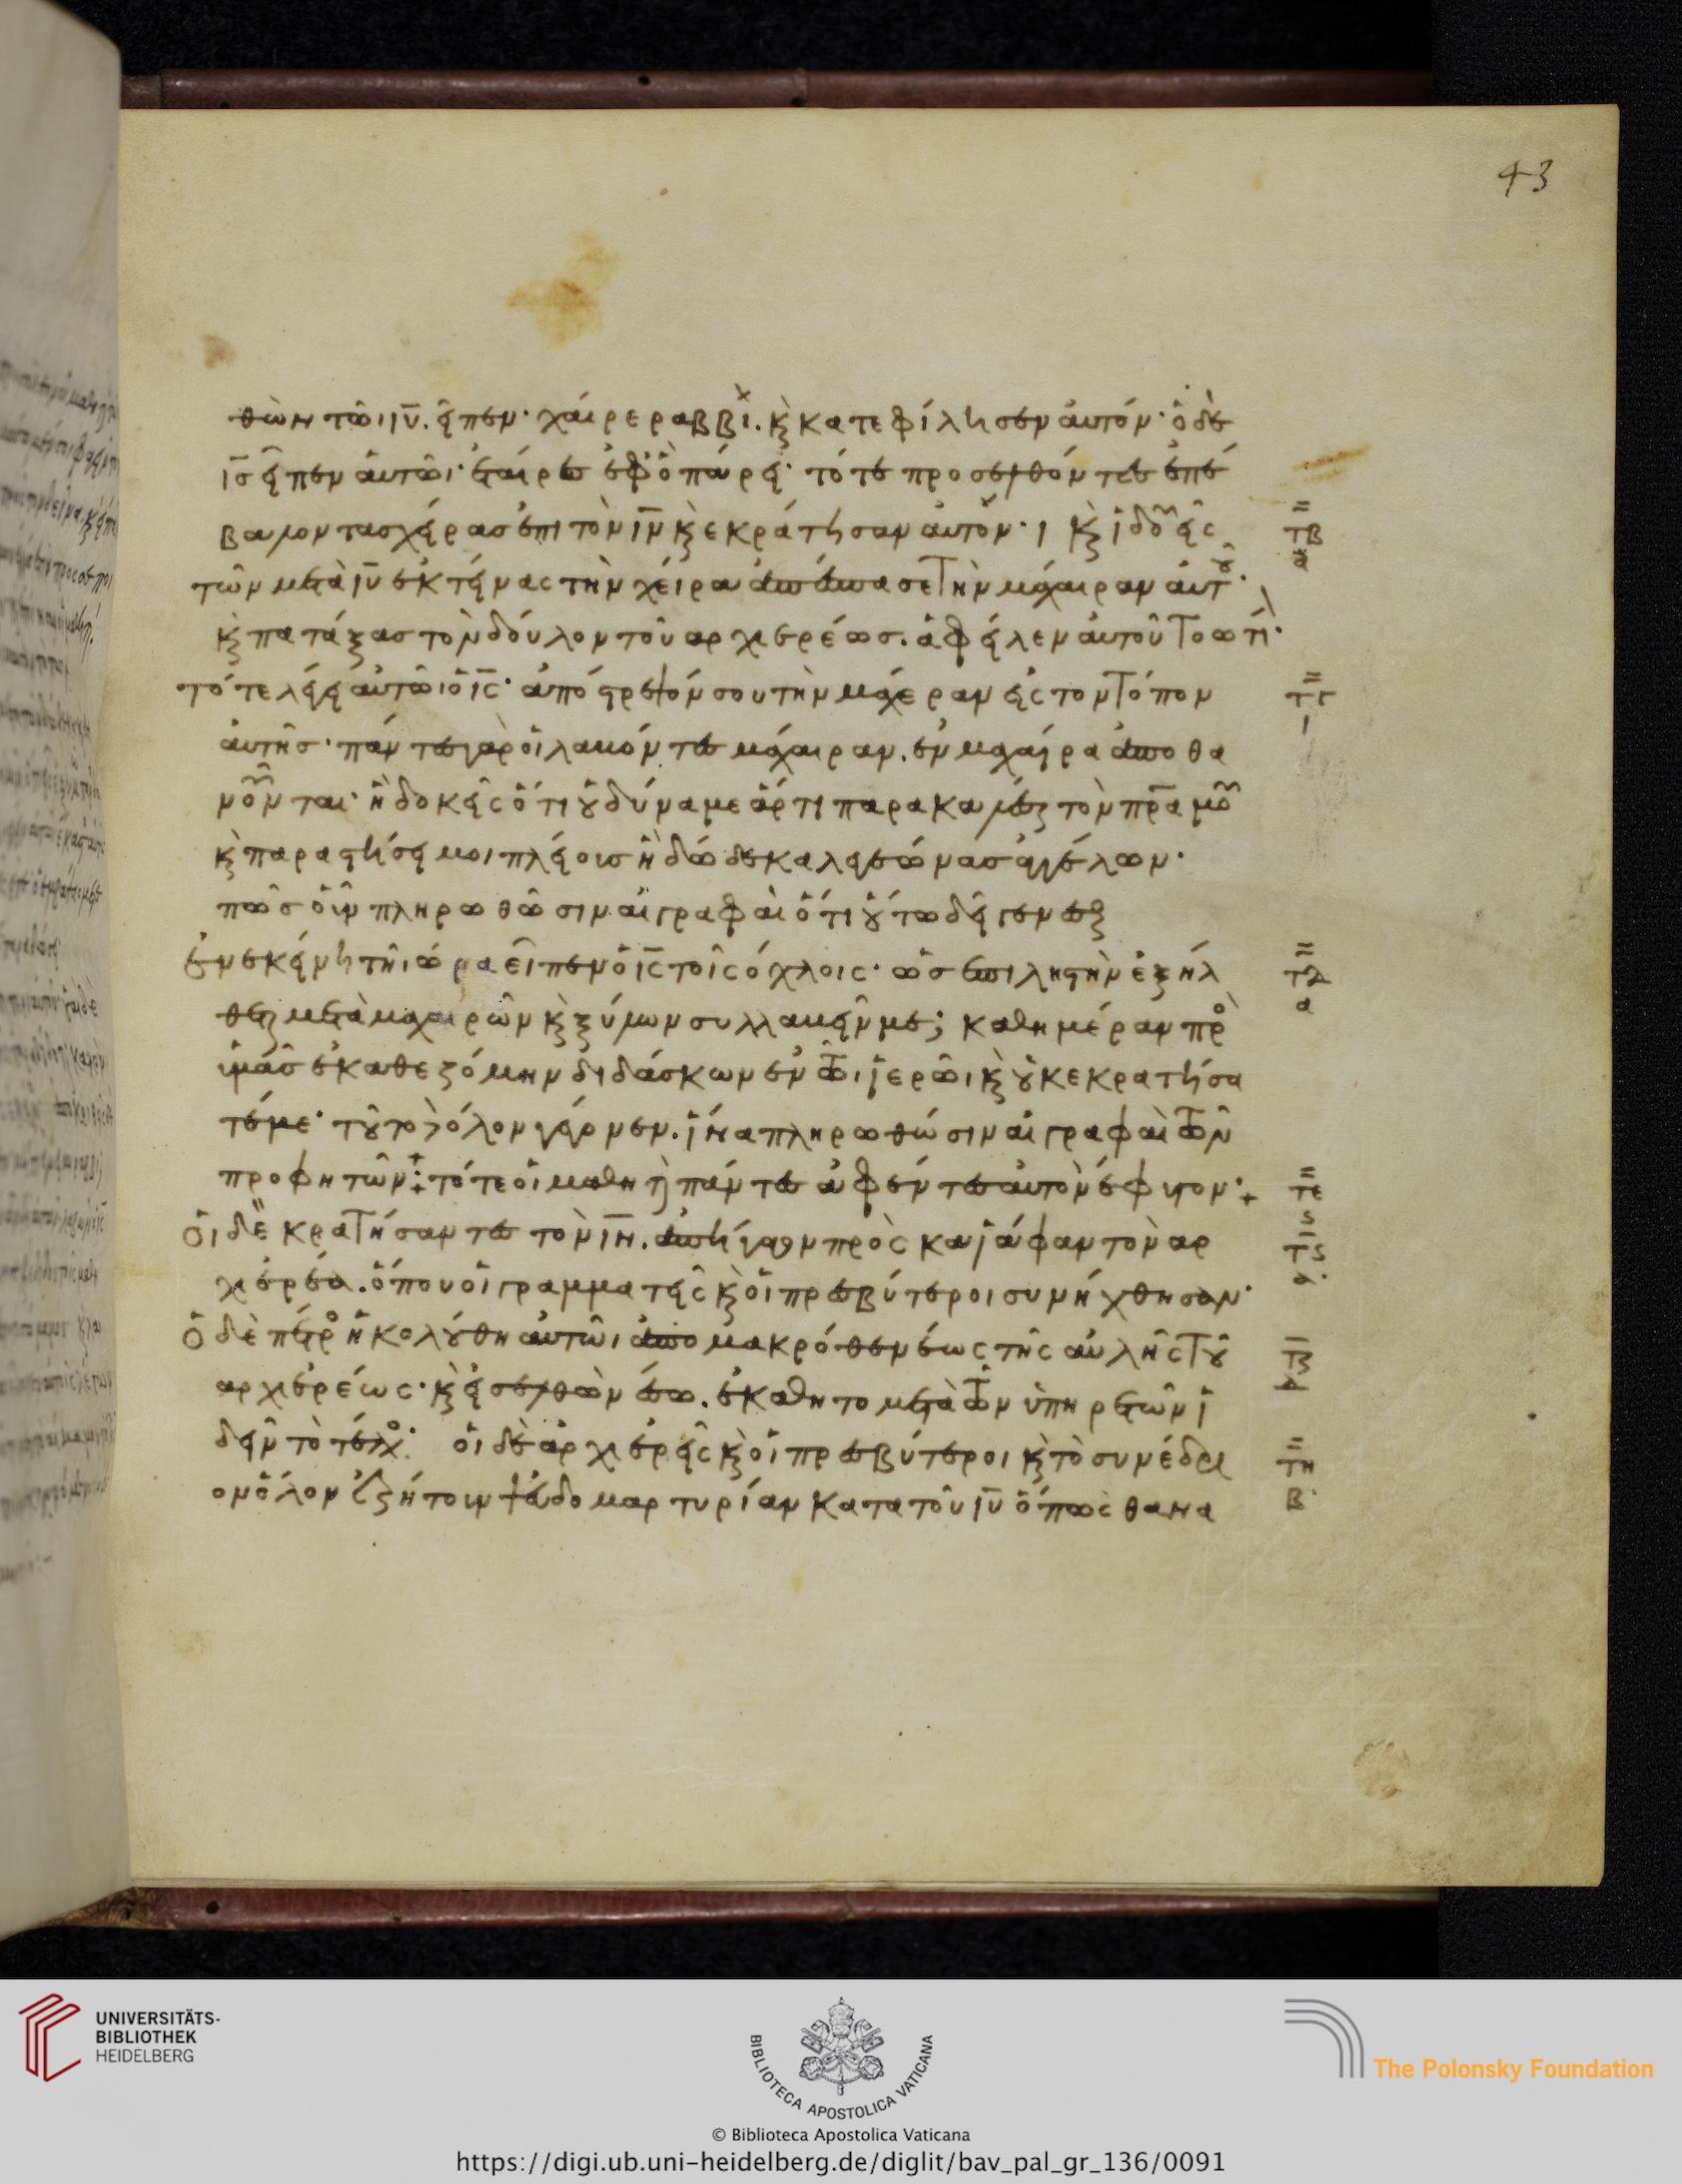 43
θὼν τῶι ιυ. εἶπεν· χάιρε ραββί. κ κατεφίλησεν ἀυτόν· ὁ δὲ
ις εἶπεν ἀυτῶι· ἑταίρε ἐφ ὃ πάρει· τότε προσελθόντες ἐπέ
βαλον τασ χείρασ ἐπι τὸν ιν κ εκράτησαν ἀυτόν· κ ἰδοῦ εἷς
τῶν μετὰ ιυ ἐκτείνας τὴν χείρα ἀπέσπασε τὴν μάχαιραν ἀυτοῦ·
κ πατάξασ τὸν δόυλον τοῦ αρχιερέωσ. ἀφείλεν ἀυτοῦ το ωτί·
τότε λέγει ἀυτῶι ὁ ις· ἀπόστρεψόν σου τὴν μάχεραν εἰς τον τόπον
ἀυτῆσ· πάντες γαρ ὁι λαβόντες μάχαιραν. ἐν μαχαίρα ἀποθα
νοῦνται· ἢ δοκεῖς ὅτι οὐ δύναμε ἄρτι παρακαλέσαι τὸν πρα μου
κ παραστήσει μοι πλείουσ ἢ δώδεκα λεγεώνασ ἀγγέλων·
πῶσ οὖν πληρωθῶσιν ἁι γραφὰι ὅτι οὕτω δεῖ γενέσθαι
ἐν ἐκείνη τῆι ώρα εἶπεν ὁ ις τοῖς όχλοις· ὡσ ἐπι ληστὴν ἐξήλ
θετε μετὰ μαχαιρῶν κ ξύλων συλλαβεῖν με; καθημέραν προς
ὑμᾶσ ἐκαθεζόμην διδάσκων ἐν τῶι ἱερῶι κ οὐκ εκρατήσα
τέ με· τοῦτο δὲ όλον γέγονεν. ἵνα πληρωθώσιν ἁι γραφὰι τῶν
προφητῶν· τότε ὁι μαθηταὶ πάντες ἀφέντες ἀυτὸν έφυγον·
ὁι δὲ κρατήσαντες τὸν ιν. ἀπήγαγον πρὸς καϊάφαν τὸν αρ
χιέρέα. ὅπου ὁι γραμματεῖς κ ὁι πρεσβύτεροι συνήχθησαν·
ὁ δὲ πέτρος ἠκολούθη ἀυτῶι ἀπο μακρόθεν έως τῆς ἀυλῆς τοῦ
αρχιερέως· κ εἰσελθὼν έσω. ἐκαθητο μετὰ τῶν ὑπηρετῶν ἰ
δεῖν τὸ τέλος· ὁι δὲ ἀρχιερεῖς κ ὁι πρεσβύτεροι κ τὸ συνέδρι
ον ὅλον ἐζήτουν ψευδομαρτυρίαν κατα τοῦ ιυ ὅπως θανα
τβ
α
τγ
ι
τδ
α
τε
ς
τς
α
τζ
δ
τη
β
UNIVERSITÄTS-
BIBLIOTHEK
HEIDELBERG
BIBLIOTECA APOSTOLICA VATICANA
The Polonsky Foundation
© Biblioteca Apostolica Vaticana
https://digi.ub.uni-heidelberg.de/diglit/bav_pal_gr_136/0091